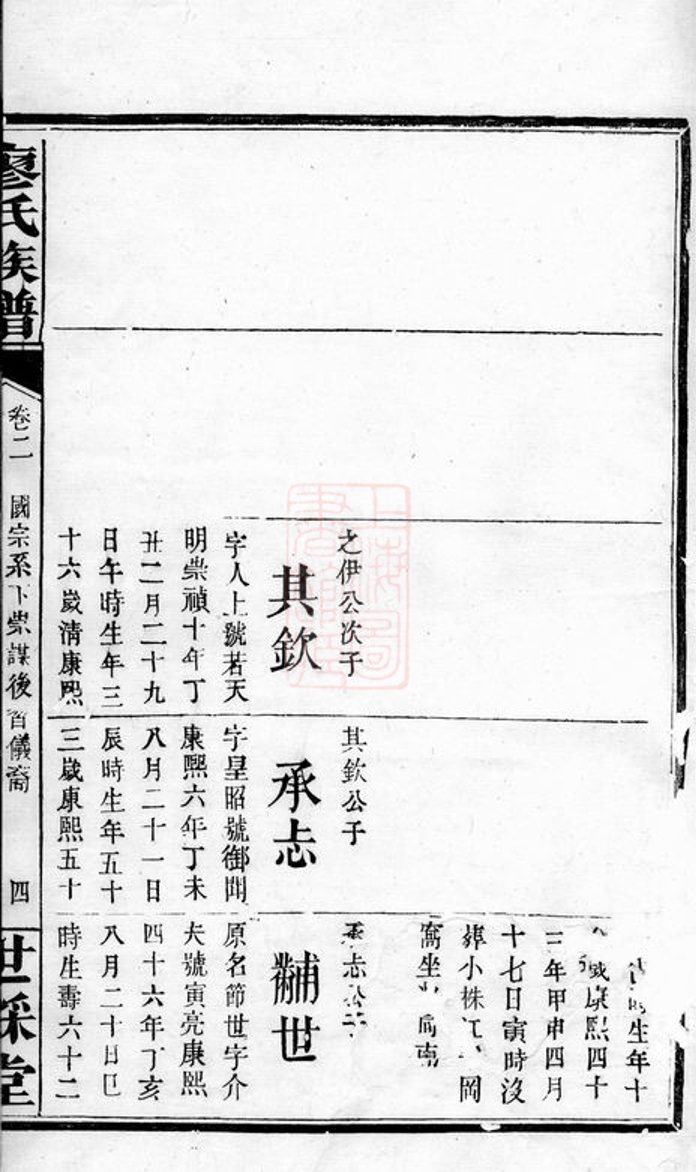 之伊公次子
其欽
字人上號若天
明崇禎十年丁
丑二月二十九
日午時生年三
十六歲清康熙
其欽公子
承志
字皇昭號御聞
康熙六年丁未
八月二十一日
辰時生年五十
三歲康熙五十
時生年十
歲康熙四十
三年甲申四月
十七日寅時沒
葬小株江 岡
窩坐 向南
承志公子
黼世
原名節世字介
夫號寅亮康熙
四十六年丁亥
八月二十日巳
時生壽六十二
廖氏族譜
卷二
國宗系下崇謀後
儀裔
四
世綵堂